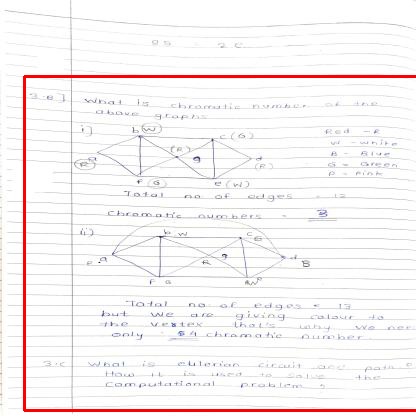 3.B] What is chromatic number of the
above graphs
i] b (W) c (G) Red - R
W - White
(R) a (R) g d (R) B - Blue
G = Green
f (G) e (W) P = Pink
Total no of edges = 12
Chromatic numbers = 3
ii) b W c G
R a R g d B
f G e W
Total no. of edges = 13
but we are giving colour to
the vertex that's why we nee
only 4 chromatic number.
3.C What is eulerian circuit and path
How it is used to solve the
computational problem ?